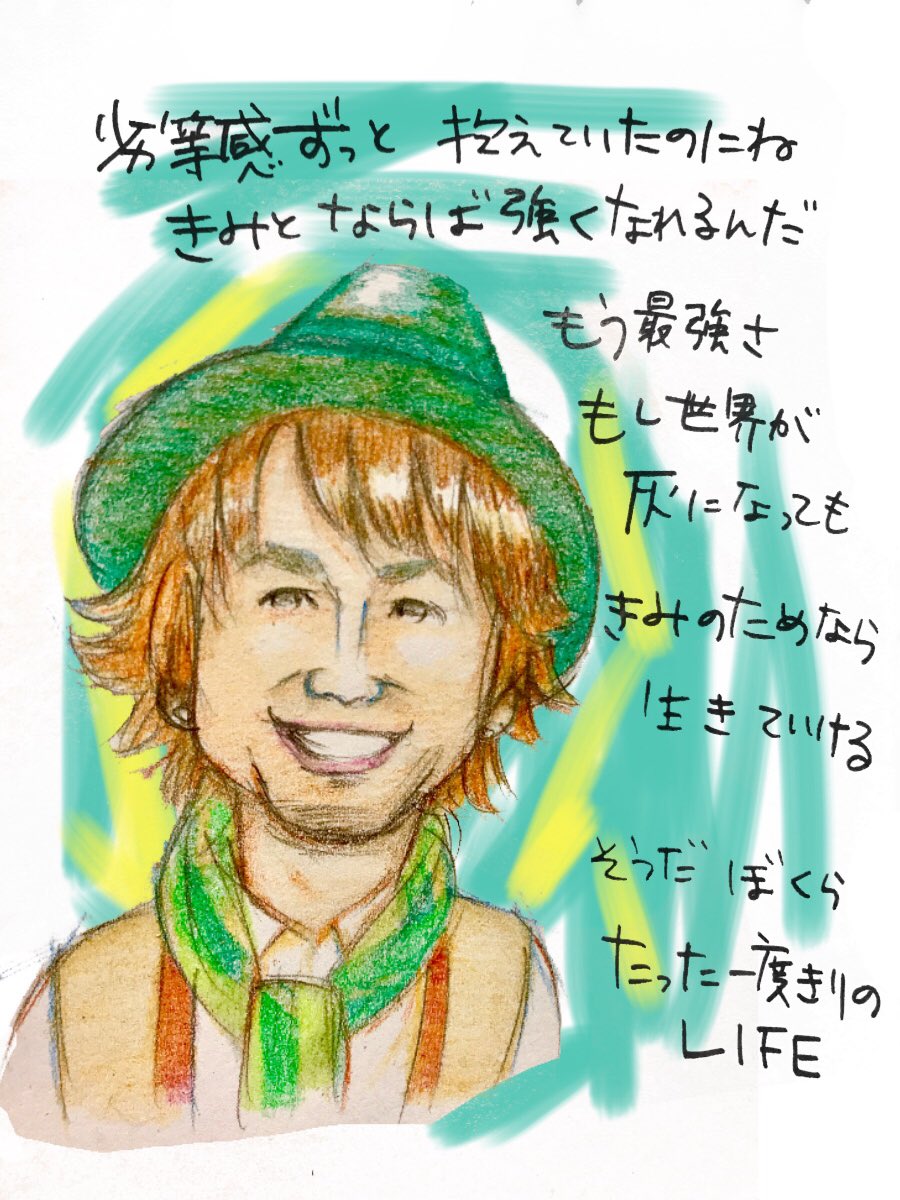 劣等感ずっと 抱えていたのにね
きみとならば強くなれるんだ
もう最強さ
もし世界が
灰になっても
きみのためなら
生きていける
そうだ ぼくら
たった一度きりの
LIFE